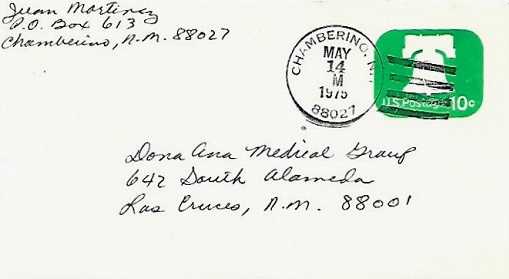 Juan Martinez
P.O. Box 613
Chamberino, N.M. 88027
CHAMBERINO, N.M.
MAY
14
M
1975
88027
U.S. Postage 10c
Dona Ana Medical Group
642 South Alameda
Las Cruces, N.M. 88001